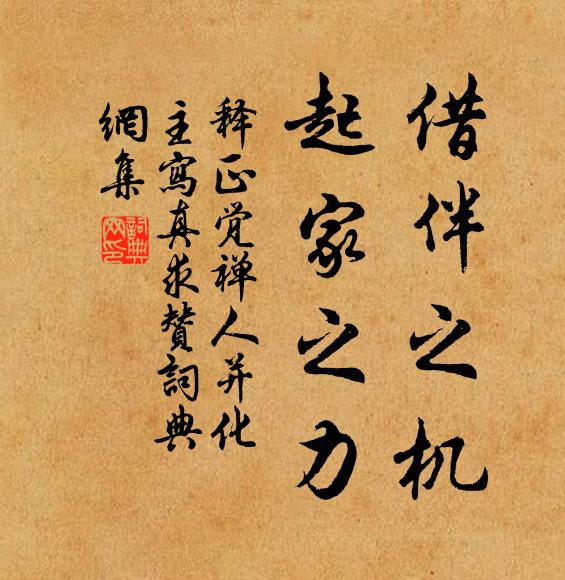 借伴之机
起家之力
释正觉禅人并化
主寫真求贊詞典
網集
詞典
网印